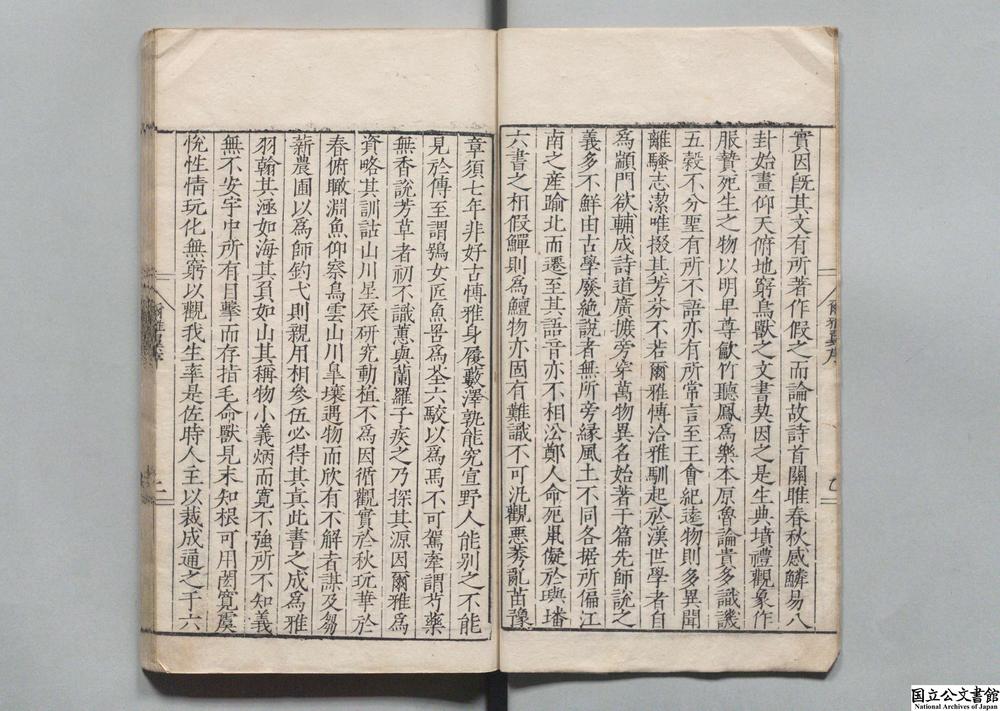 實因旣其文有所著作假之而論故詩首關雎春秋感麟易八
卦始畫仰天俯地窮鳥獸之文書契因之是生典墳禮觀象作
服贄死生之物以明卑尊歛竹聽鳳爲樂本原魯論貴多識譏
五穀不分聖有所不語亦有所常言至王會紀遠物則多異聞
離騷志潔唯掇其芳芬不若爾雅博洽雅馴起於漢世學者自
爲顓門欲輔成詩道廣摭旁穿萬物異名始著于篇先師說之
義多不鮮由古學廢絶說者無所旁緣風土不同各据所偏江
南之産踰北而遷至其語音亦不相沿鄭人命死鼠儗於璵璠
六書之相假鱓則爲鱣物亦固有難識不可汎觀惡莠亂苗豫
章須七年非好古博雅身履藪澤孰能究宣野人能别之不能
見於傳至謂鴞女匠魚罟爲荃六駮以爲馬不可駕牽謂芍藥
無香說芳草者初不識蕙與蘭羅子疾之乃探其源因爾雅爲
資略其訓詁山川星辰研究動植不爲因循觀實於秋玩華於
春俯瞰淵魚仰察鳥雲山川皐壤遇物而欣有不解者謀及芻
薪農圃以爲師釣弋則親用相參伍必得其真此書之成爲雅
羽翰其涵如海其負如山其稱物小義炳而寛不強所不知義
無不安宇中所有目擊而存指毛命獸見末知根可用囿寛虞
恱性情玩化無窮以觀我生率是佐時人主以裁成通之于六
爾雅翼序
爾雅翼序
二
国立公文書館
National Archives of Japan